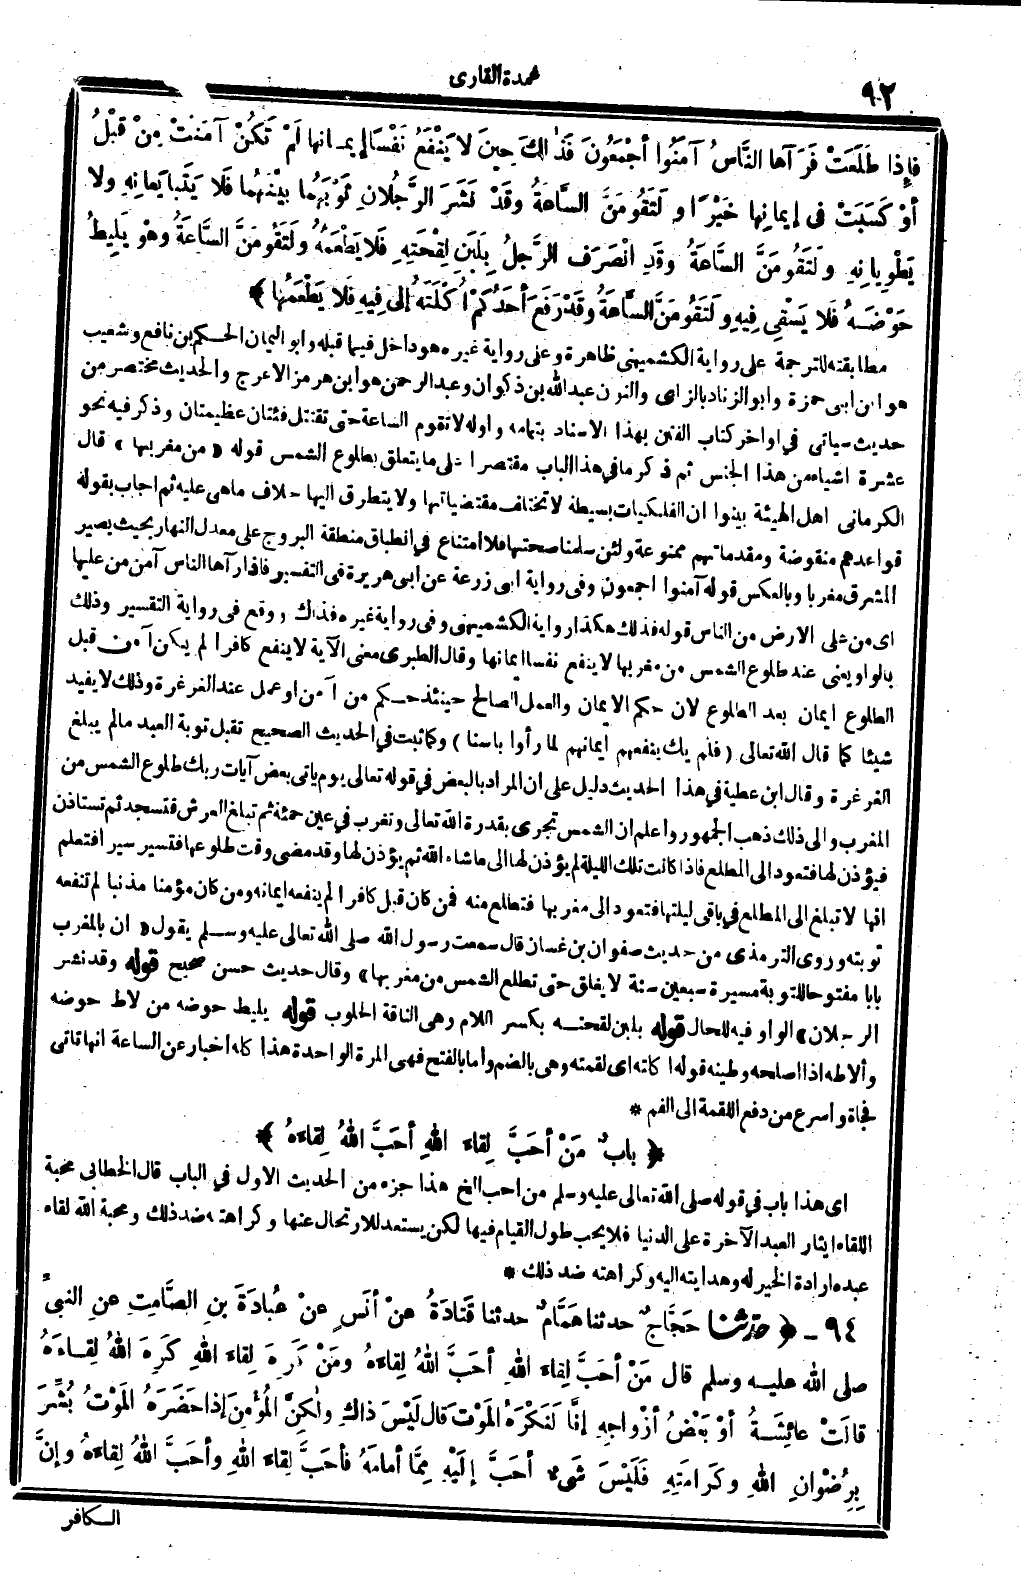 ٩٢
عمدة القارى
فإذا طلعت فرآها الناس آمنوا أجمعون فذلك حين لا ينفع نفسا إيمانها لم تكن آمنت من قبل
أو كسبت فى إيمانها خيرا ولتقومن الساعة وقد نشر الرجلان ثوبهما بينهما فلا يتبايعانه ولا
يطويانه ولتقومن الساعة وقد انصرف الرجل بلبن لقحته فلا يطعمه ولتقومن الساعة وهو يليط
حوضه فلا يسقى فيه ولتقومن الساعة وقد رفع أحدكم أكلته إلى فيه فلا يطعمها ﴾
مطابقته للترجمة على رواية الكشميهنى ظاهرة وعلى رواية غيره هو داخل فيما قبله وابو اليمان الحكم بن نافع وشعيب
هو ابن ابى حمزة وابو الزناد بالزاى والنون عبد الله بن ذكوان وعبد الرحمن هو ابن هرمز الاعرج والحديث مختصر من
حديث سياتى في اواخر كتاب الفتن بهذا الاسناد بتمامه واوله لا تقوم الساعة حتى تقتتل فئتان عظيمتان وذكر فيه نحو
عشرة اشياء من هذا الجنس ثم ذكر ما في هذا الباب مقتصرا على ما يتعلق بطلوع الشمس قوله « من مغربها » قال
الكرمانى اهل الهيئة بينوا ان الفلكيات بسيطة لا تختلف مقتضياتها ولا يتطرق اليها خلاف ماهى عليه ثم اجاب بقوله
قواعدهم منقوضة ومقدماتهم ممنوعة ولئن سلمنا صحتها فلا امتناع في انطباق منطقة البروج على معدل النهار بحيث يصير
المشرق مغربا وبالعكس قوله آمنوا اجمعون وفى رواية ابى زرعة عن ابى هريرة فى التفسير فاذا رآها الناس آمن من عليها
اى من على الارض من الناس قوله فذلك هكذا رواية الكشميهنى وفى رواية غيره فذاك ووقع فى رواية التفسير وذلك
بالواو يعنى عند طلوع الشمس من مغربها لا ينفع نفسا ايمانها وقال الطبرى معنى الآية لا ينفع كافرا لم يكن آمن قبل
الطلوع ايمان بعد الطلوع لان حكم الايمان والعمل الصالح حينئذ حكم من آمن او عمل عند الغرغرة وذلك لا يفيد
شيئا كما قال الله تعالى ( فلم يك ينفعهم ايمانهم لما رأوا باسنا ) وكما ثبت في الحديث الصحيح تقبل توبة العبد مالم يبلغ
الغرغرة وقال ابن عطية في هذا الحديث دليل على ان المراد بالبعض في قوله تعالى يوم ياتى بعض آيات ربك طلوع الشمس من
المغرب والى ذلك ذهب الجمهور واعلم ان الشمس تجرى بقدرة الله تعالى وتغرب في عين حمئة ثم تبلغ العرش فتسجد ثم تستاذن
فيؤذن لها فتعود الى المطلع فاذا كانت تلك الليلة لم يؤذن لها الى ما شاء الله ثم يؤذن لها وقد مضى وقت طلوعها فتسير سيرا فتعلم
انها لا تبلغ الى المطلع في باقى ليلتها فتعود الى مغربها فتطلع منه فمن كان قبل كافرا لم ينفعه ايمانه ومن كان مؤمنا مذنبا لم تنفعه
توبته وروى الترمذى من حديث صفوان بن غسان قال سمعت رسول الله صلى الله تعالى عليه وسلم يقول « ان بالمغرب
بابا مفتوحا للتوبة مسيرة سبعين سنة لا يغلق حتى تطلع الشمس من مغربها » وقال حديث حسن صحيح قوله وقد نشر
الرجلان » الواو فيه للحال قوله بلبن لقحته بكسر اللام وهى الناقة الحلوب قوله يليط حوضه من لاط حوضه
وألاطه اذا اصلحه وطينه قوله اكلته اى لقمته وهى بالضم وأما بالفتح فهى المرة الواحدة هذا كله اخبار عن الساعة انها تاتى
فجاة واسرع من دفع اللقمة الى الفم *
﴿ باب من أحب لقاء الله أحب الله لقاءه ﴾
اى هذا باب في قوله صلى الله تعالى عليه وسلم من احب الخ هذا جزء من الحديث الاول في الباب قال الخطابى محبة
اللقاء ايثار العبد الآخرة على الدنيا فلا يحب طول القيام فيها لكن يستعد للارتحال عنها وكراهته ضد ذلك ومحبة الله لقاء
عبده ارادة الخير له وهدايته اليه وكراهته ضد ذلك *
٩٤ - ﴿ حدثنا حجاج حدثنا همام حدثنا قتادة عن أنس عن عبادة بن الصامت عن النبى
صلى الله عليه وسلم قال من أحب لقاء الله أحب الله لقاءه ومن كره لقاء الله كره الله لقاءه
قالت عائشة أو بعض أزواجه إنا لنكره الموت قال ليس ذاك ولكن المؤمن إذا حضره الموت بشر
برضوان الله وكرامته فليس شىء أحب إليه مما أمامه فأحب لقاء الله وأحب الله لقاءه وإن
الكافر